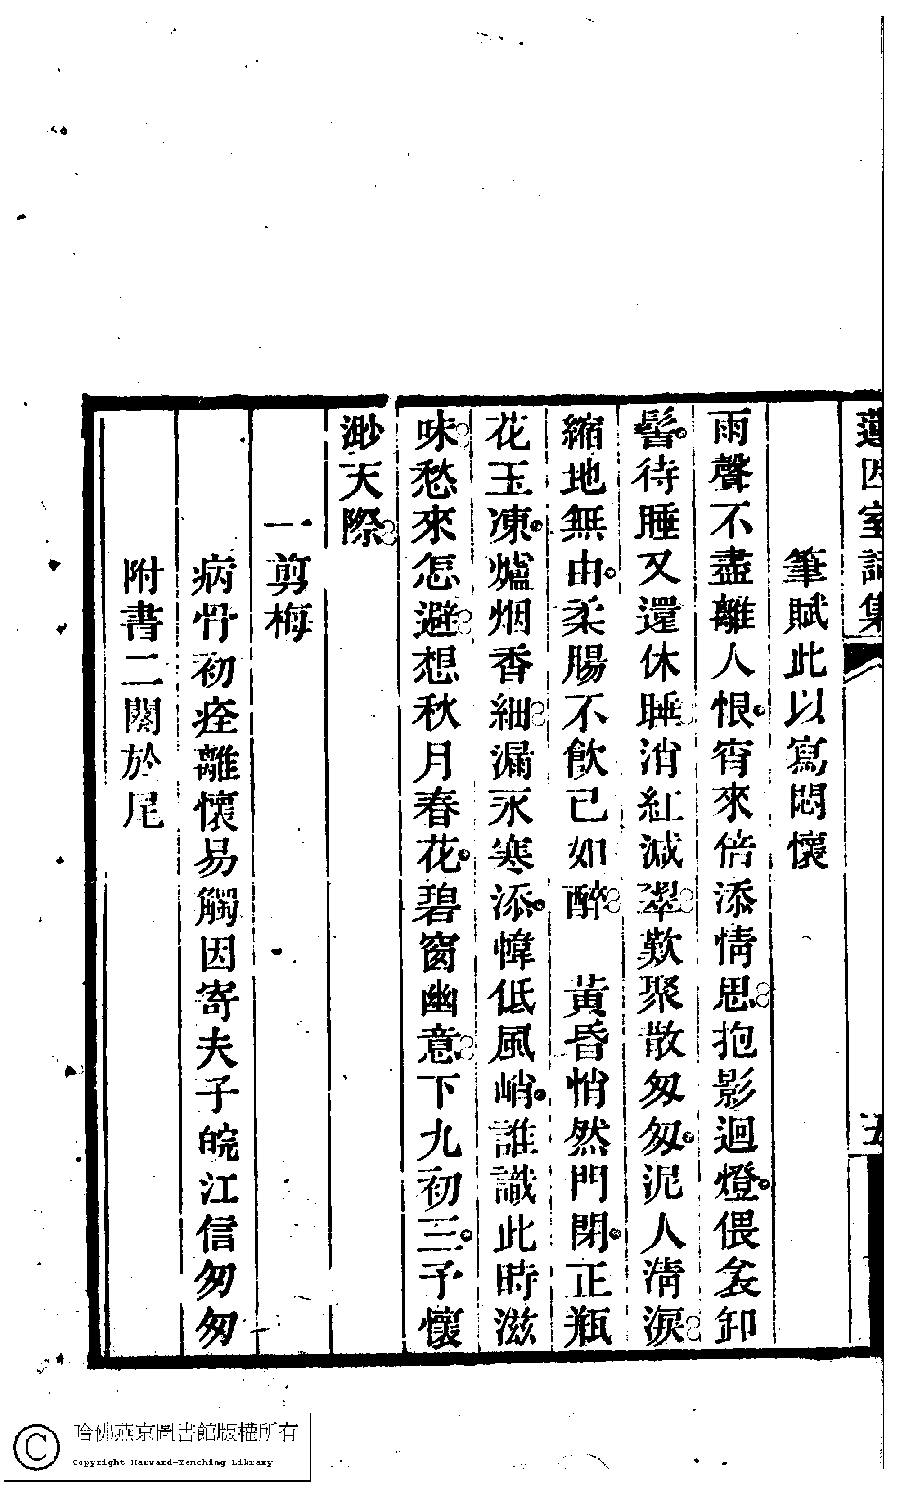 蓮因室詞集
五
筆賦此以寫悶懷
雨聲不盡離人恨宵來倍添情思抱影迴燈偎衾卸
髻待睡又還休睡消紅減翠歎聚散匆匆泥人清淚
縮地無由柔腸不飲已如醉　黃昏悄然門閉正瓶
花玉凍爐烟香細漏永寒添幃低風峭誰識此時滋
味愁來怎避想秋月春花碧窗幽意下九初三予懷
渺天際
一剪梅
病骨初痊離懷易觸因寄夫子皖江信匆匆
附書二闋於尾
哈佛燕京圖書館版權所有
Copyright Harvard-Yenching Library